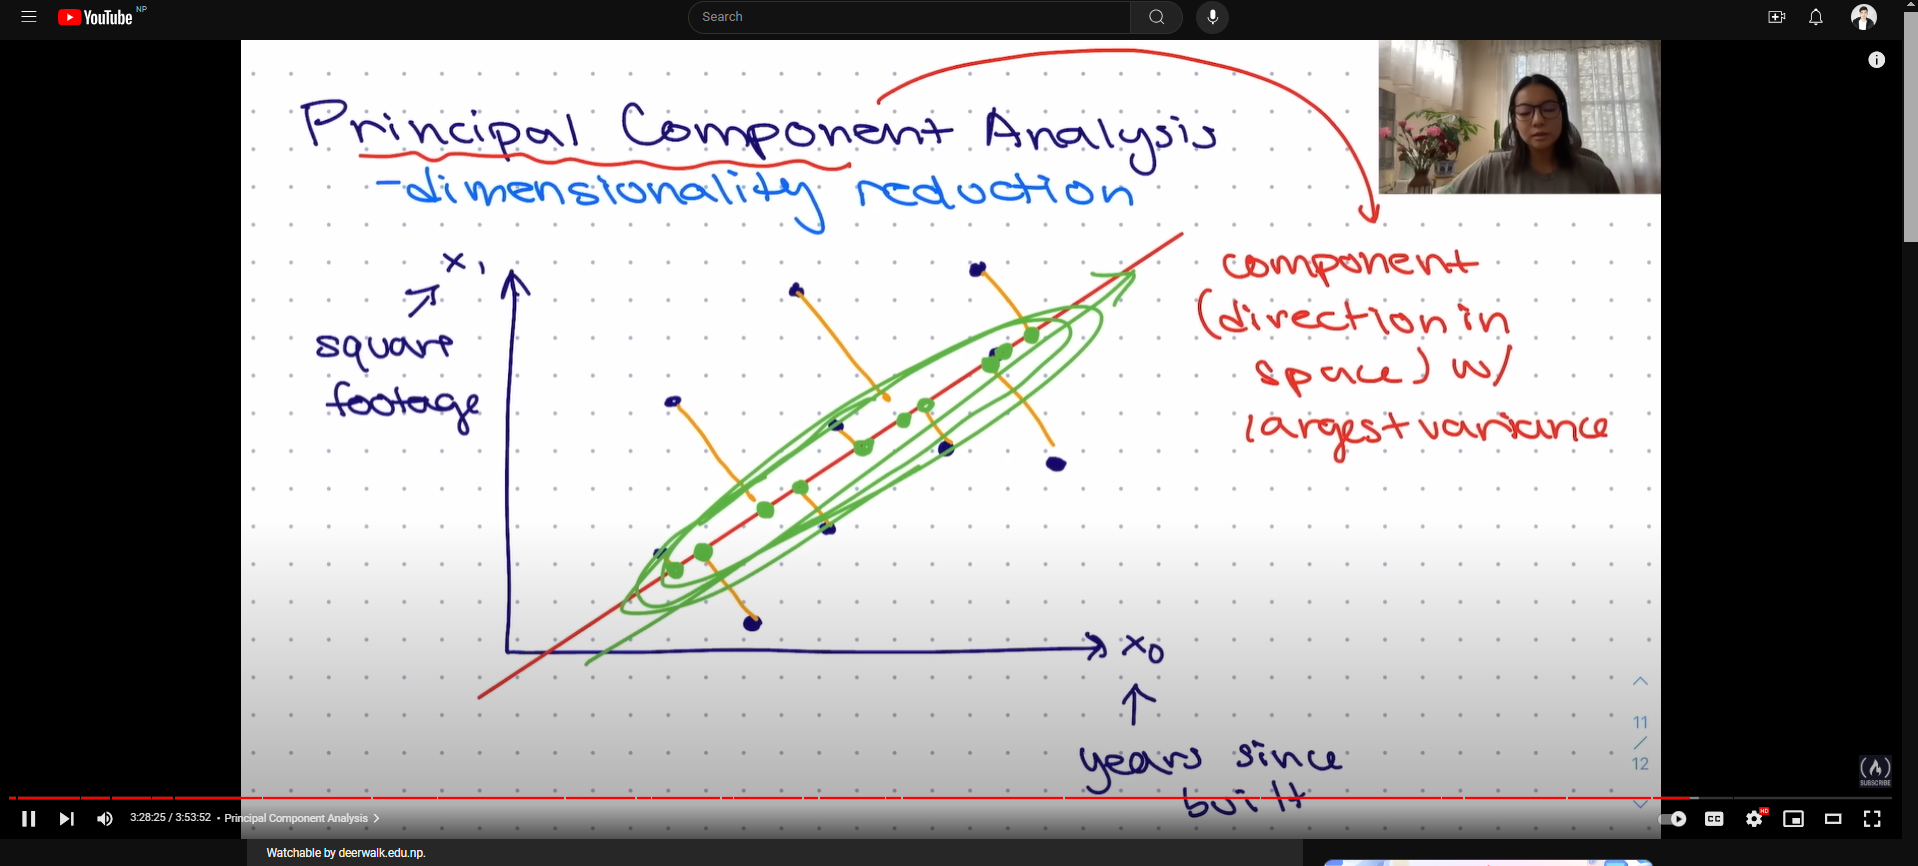 YouTube NP
Search
Principal Component Analysis
-dimensionality reduction
x1
square
footage
component
(direction in
space) w/
largest variance
x0
years since
built
11
/
12
SUBSCRIBE
3:28:25 / 3:53:52 • Principal Component Analysis
CC
HD
Watchable by deerwalk.edu.np.